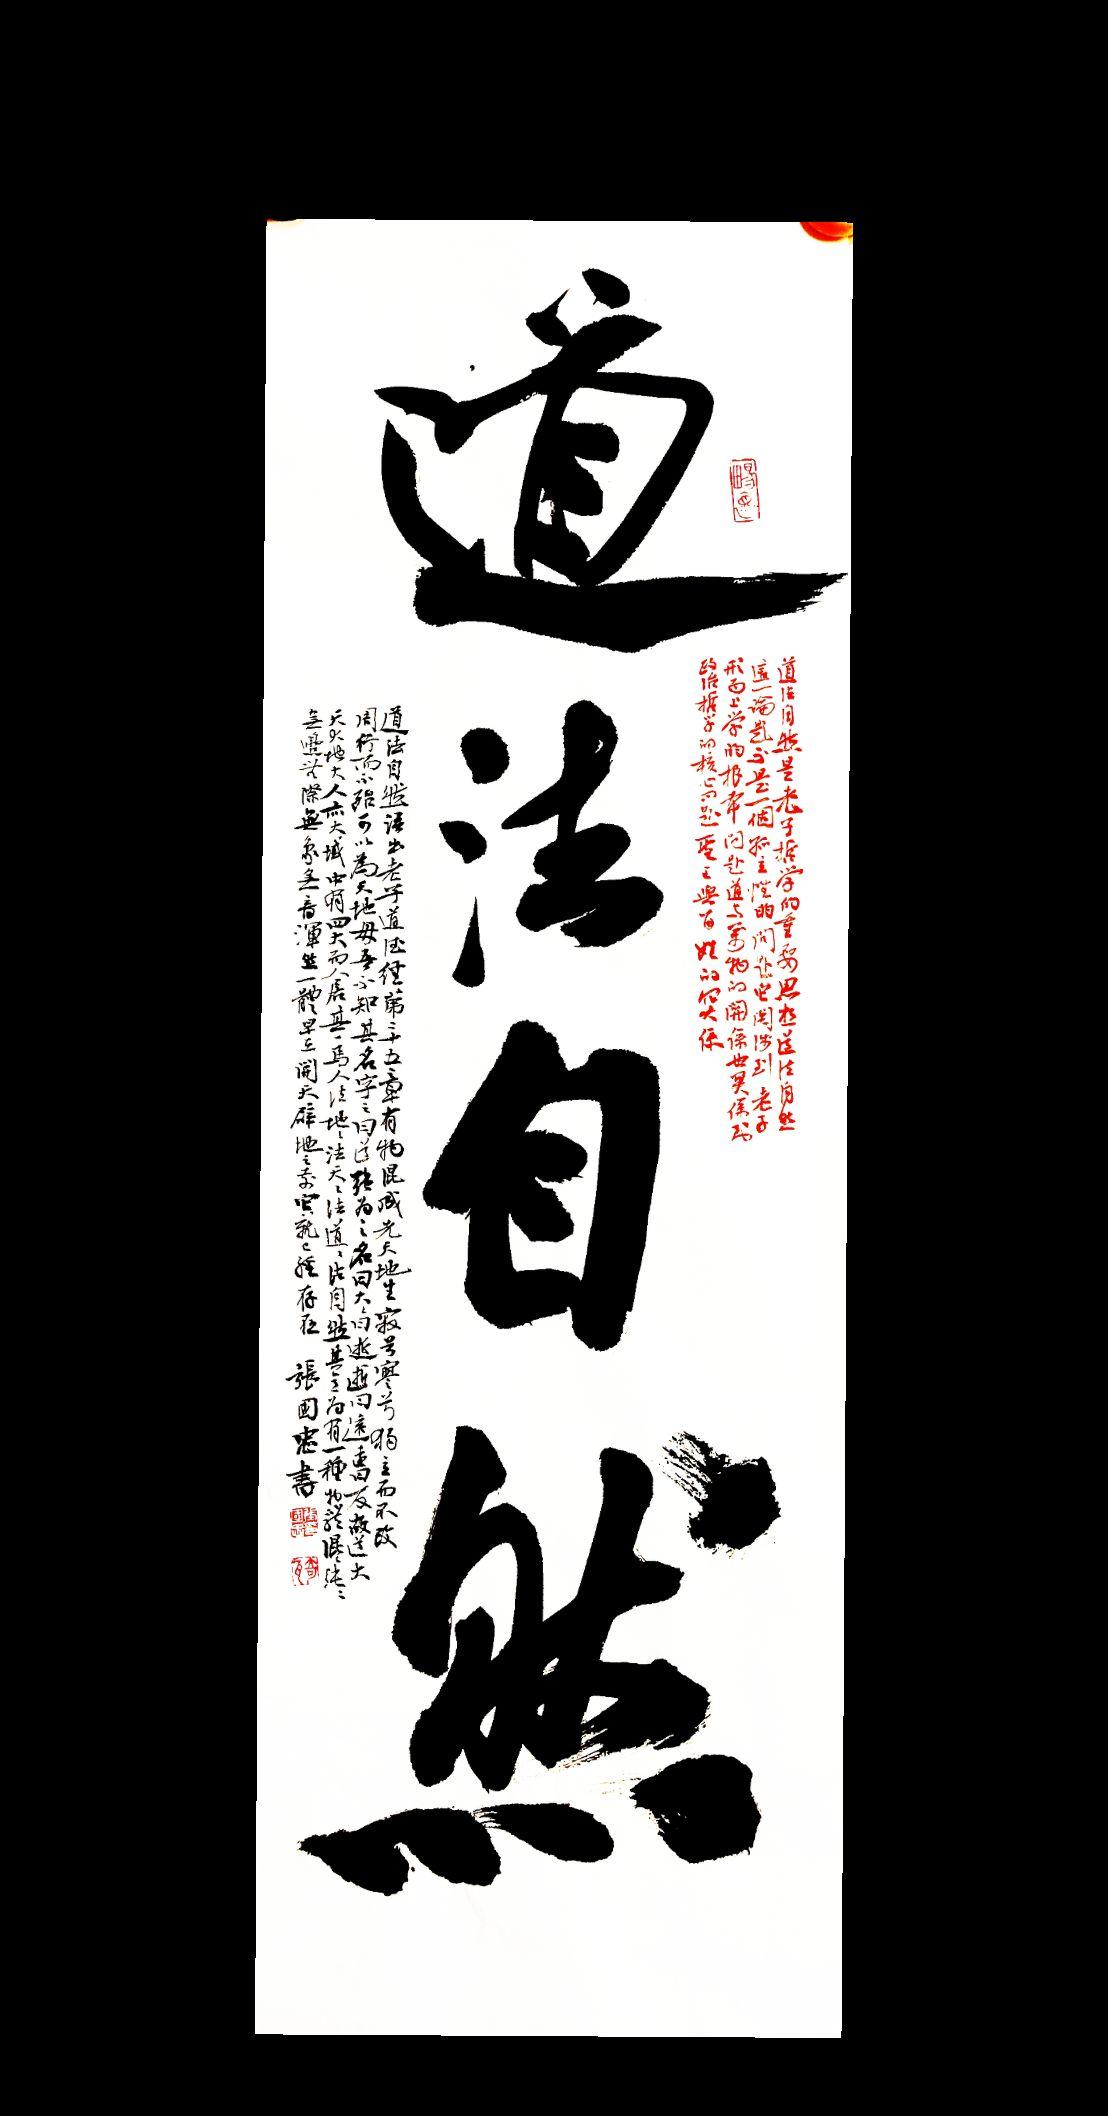 道法自然
道法自然是老子哲学的重要思想道法自然
這一論題不是一個孤立性的問題它関涉到老子
形而上学的根本问题道与萬物的関係也関係到
政治哲学的核心问题聖王與百姓的関係
道法自然语出老子道德經第二十五章有物混成先天地生寂兮寥兮獨立而不改
周行而不殆可以為天地母吾不知其名字之曰道强為之名曰大大曰逝逝曰遠遠曰反故道大
天大地大人亦大域中有四大而人居其一焉人法地地法天天法道道法自然其意為有一種物體混混沌沌
無邊無際無象無音渾然一體早在開天辟地之前它就已經存在
張國忠書